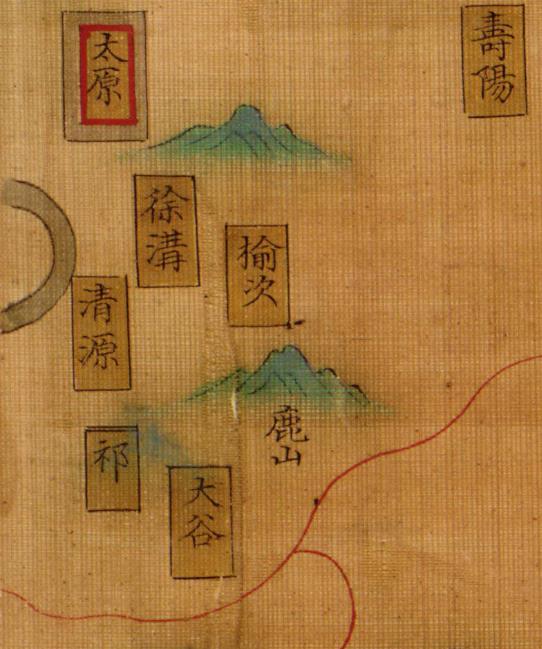 壽陽
太原
徐溝
榆次
清源
鹿山
祁
大谷